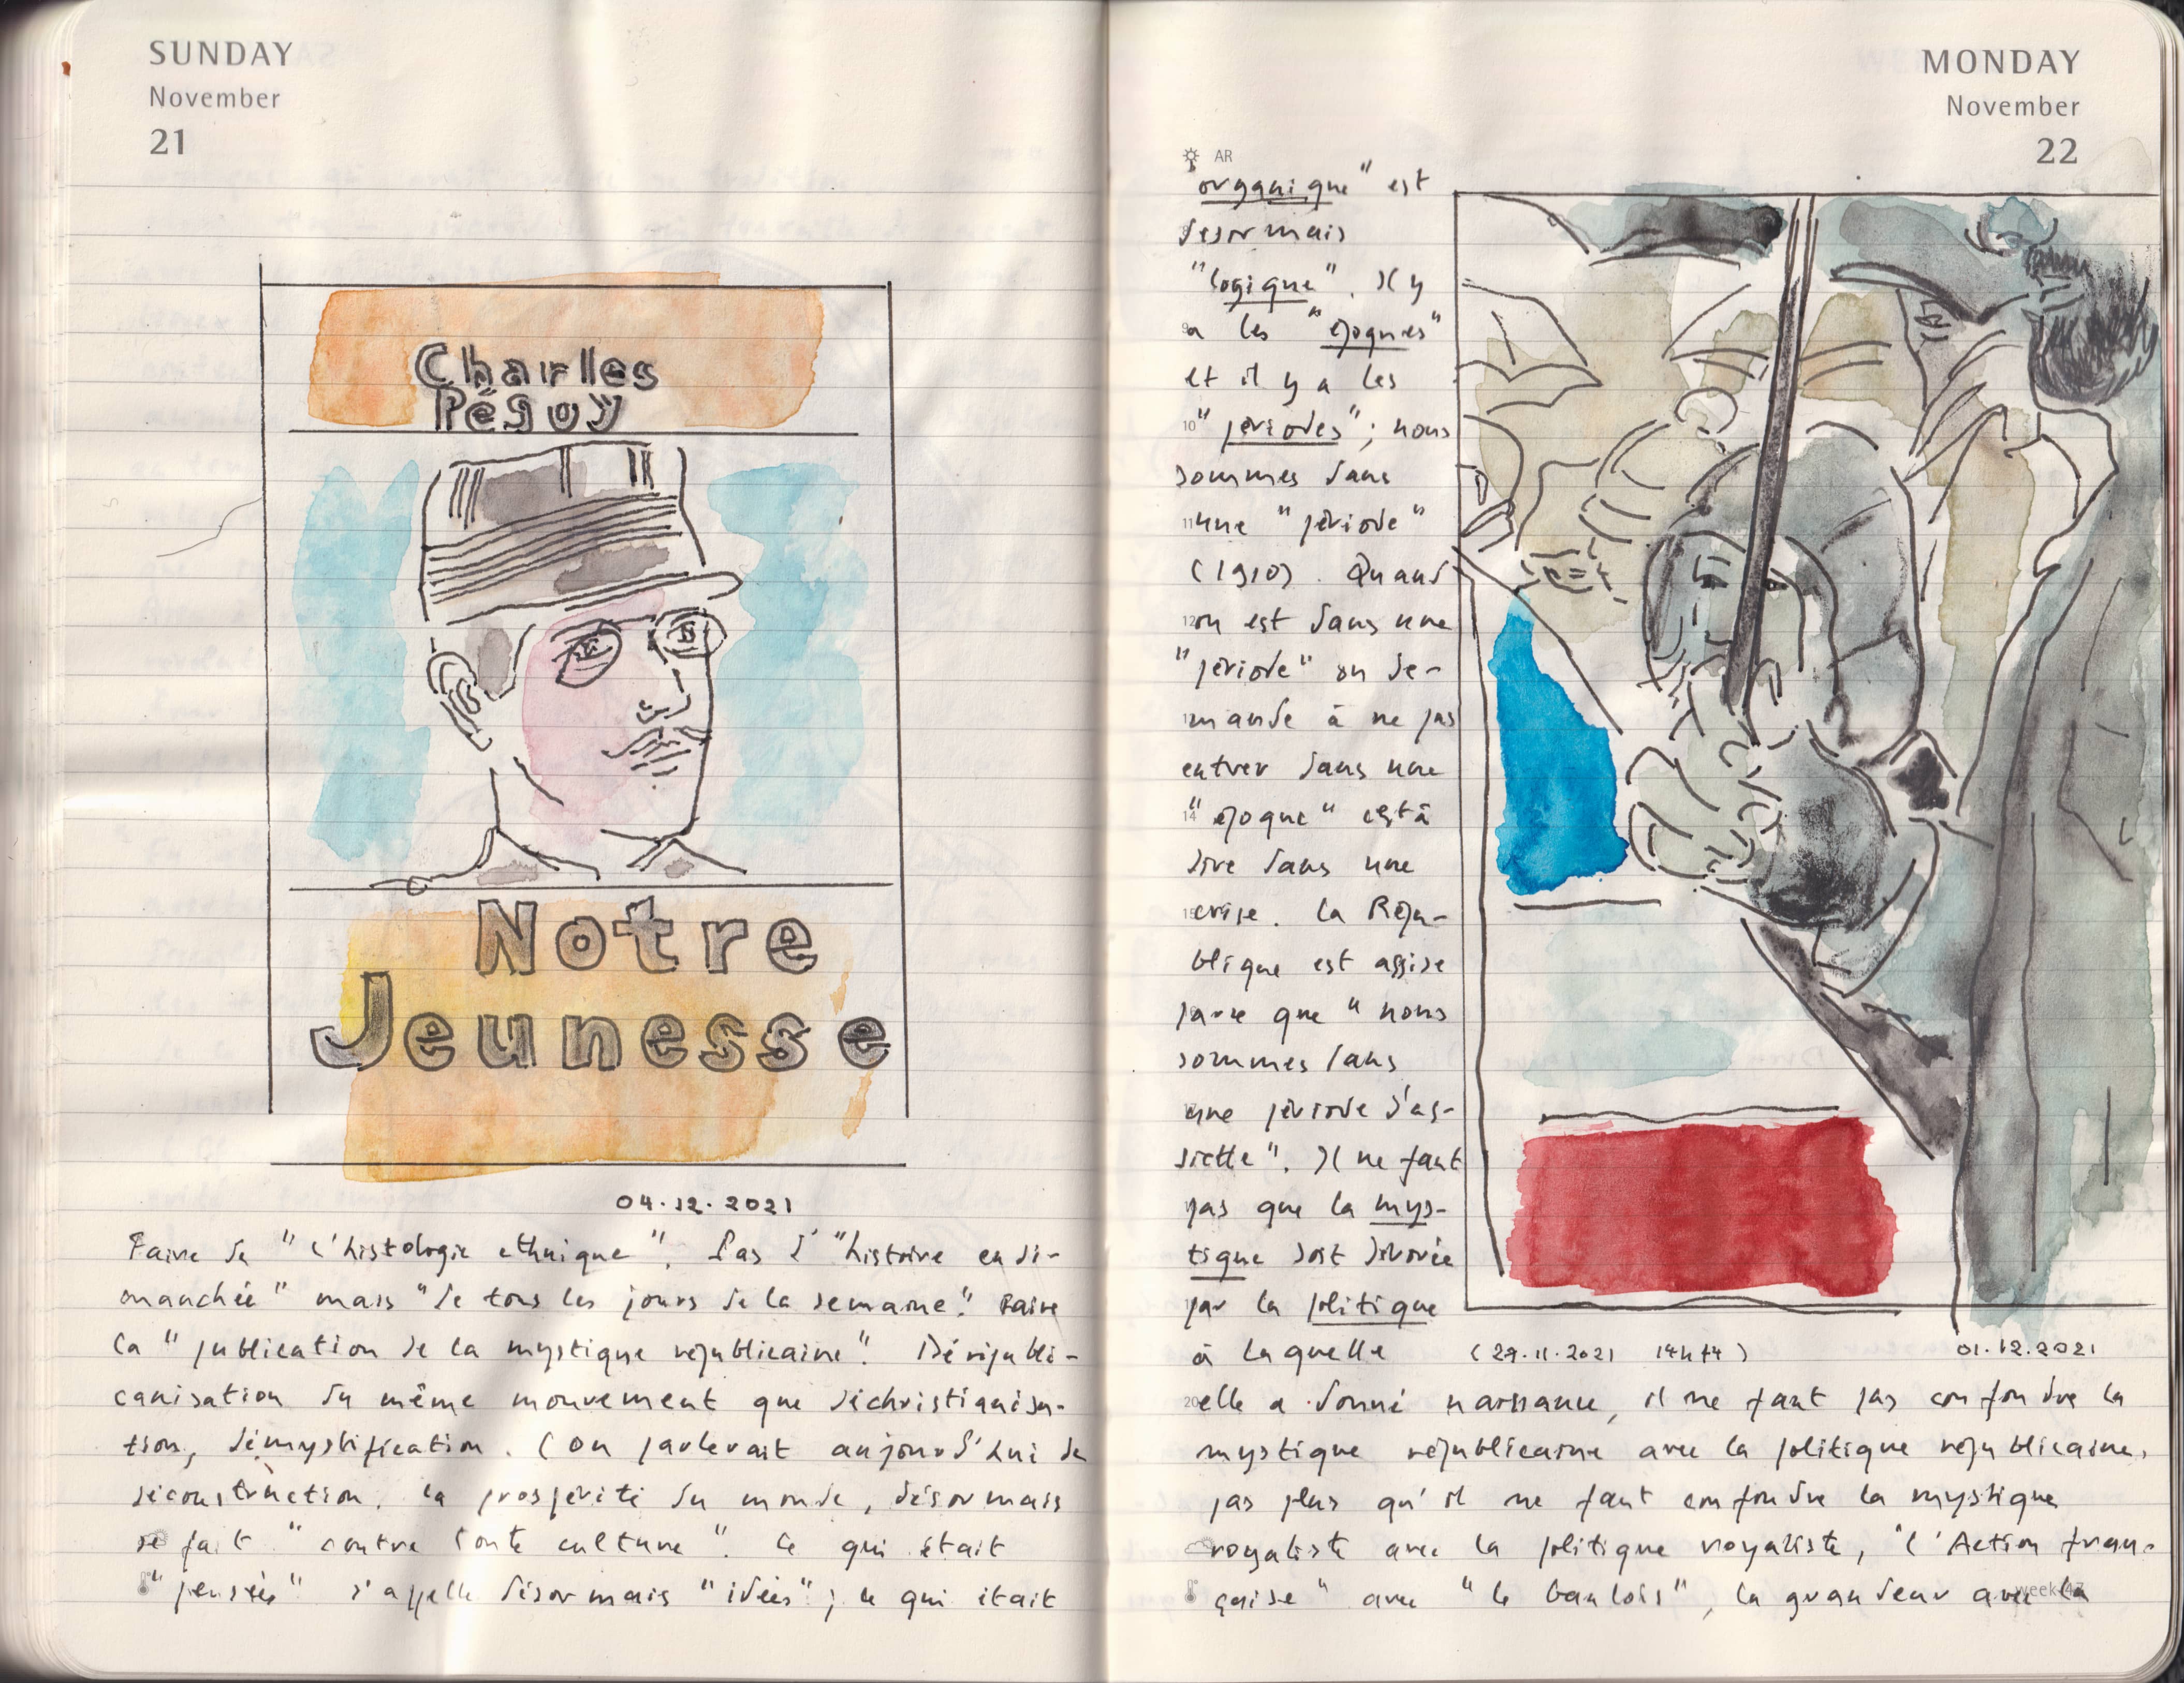 SUNDAY
November
21
Charles
Péguy
Notre
Jeunesse
04.12.2021
Faire de "l'histologie ethnique". Pas d'"histoire endi-
manchée" mais "de tous les jours de la semaine". Faire
la "publication de la mystique républicaine". Dérépubli-
canisation du même mouvement que déchristianisa-
tion, démystification. (On parlerait aujourd'hui de
déconstruction. La prospérité du monde, désormais
se fait "contre toute culture". Ce qui était
"pensées" s'appelle désormais "idées" ; ce qui était
MONDAY
November
22
AR
"organique" est
désormais
"logique". Il y
a les "époques"
et il y a les
"périodes" ; nous
sommes dans
une "période"
(1910). Quand
on est dans une
"période" on de-
mande à ne pas
entrer dans une
"époque" c'est à
dire dans une
crise. La Répu-
blique est assise
parce que "nous
sommes dans
une période d'as-
siette". Il ne faut
pas que la mys-
tique soit dévorée
par la politique
à laquelle
(29.11.2021 14h44)
01.12.2021
elle a donné naissance, il ne faut pas confondre la
mystique républicaine avec la politique républicaine,
pas plus qu'il ne faut confondre la mystique
royaliste avec la politique royaliste, "l'Action fran-
çaise" avec "le Gaulois", la grandeur avec la
week 47